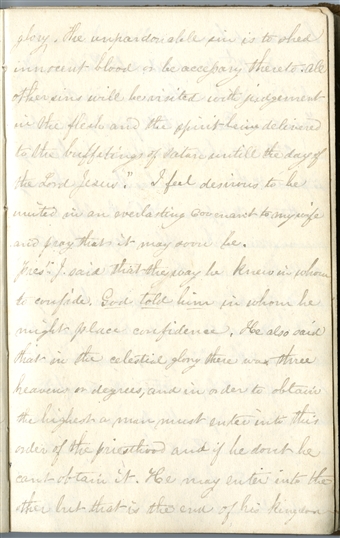 glory. The unpardonable sin is to shed
innocent blood or be accepary thereto. All
other sins will be visited with judgement
in the flesh and the spirit being delivered
to the buffetings of Satan untill the day of
the Lord Jesus." I feel desirous to be
united in an everlasting covenant to my wife
and pray that it may soon be.
Prest. J. said that the way he knew in whom
to confide. God told him in whom he
might place confidence. He also said
that in the celestial glory there was three
heavens or degrees, and in order to obtain
the highest a man must enter into this
order of the priesthood and if he dont he
cant obtain it. He may enter into the
other but that is the end of his kingdom